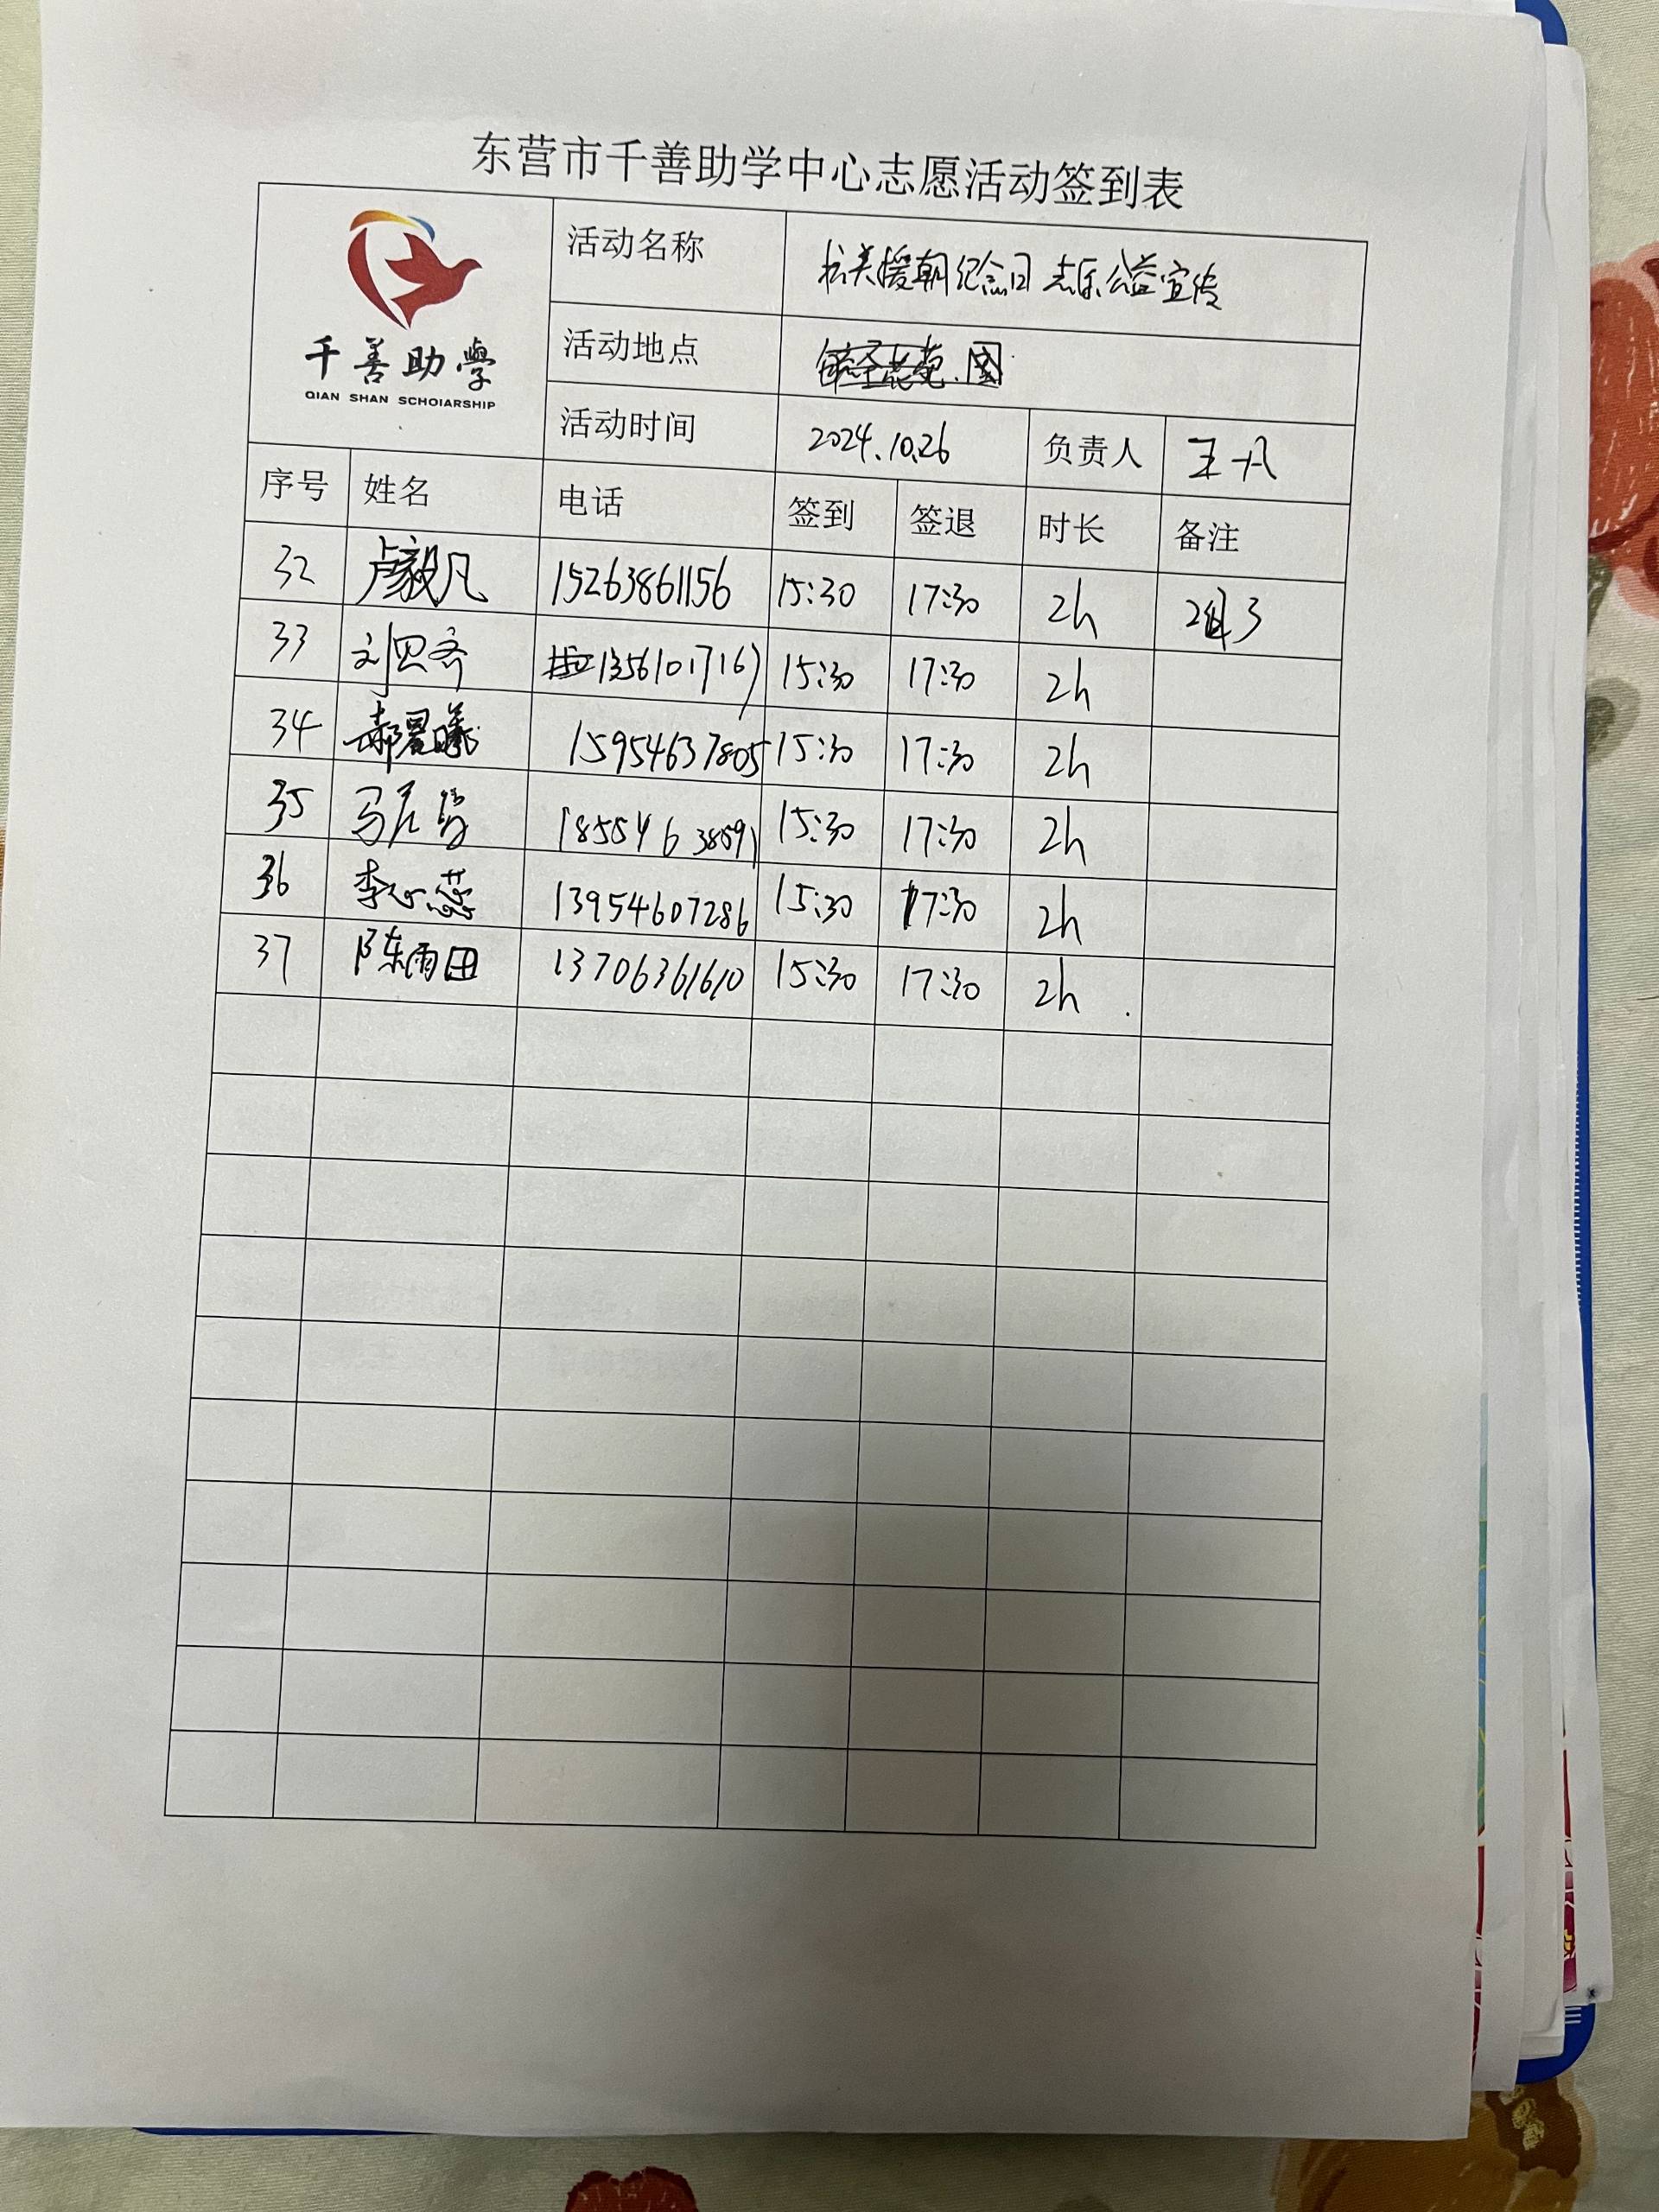 东营市千善助学中心志愿活动签到表
千善助學
QIAN SHAN SCHOIARSHIP
活动名称 抗美援朝纪念日 志乐公益宣传
活动地点
活动时间 2024.10.26 负责人 王一凡
序号 姓名 电话 签到 签退 时长 备注
32 卢毅凡 15263861156 15:30 17:30 2h
33 刘思齐 13561017167 15:30 17:30 2h
34 郝晨曦 15954637805 15:30 17:30 2h
35 马 15:30 17:30 2h
36 李心蕊 13954607286 15:30 17:30 2h
37 陈雨田 13706361610 15:30 17:30 2h